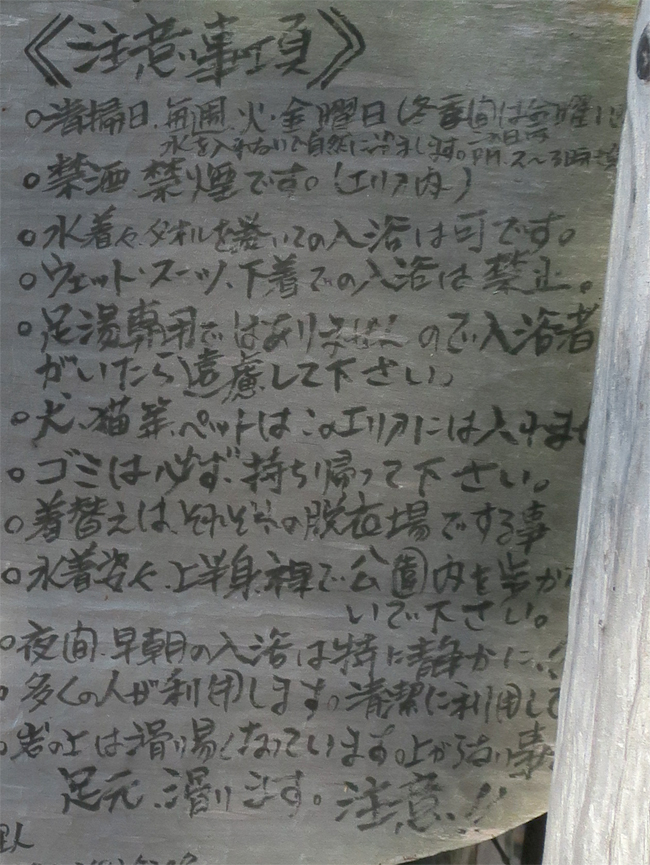 《注意事項》
○清掃日、毎週、火・金曜日(冬季間は金曜日
水を入れないで自然に冷まします。
○禁酒、禁煙です。(エリア内)
○水着や、タオルを巻いての入浴は可です。
○ウェット・スーツ、下着での入浴は禁止。
○足湯専用ではありませんので、入浴者
がいたら遠慮して下さい。
○犬、猫等、ペットはこのエリアには入れませ
○ゴミは必ず、持ち帰って下さい。
○着替えは、それぞれの脱衣場でする事
○水着姿や、上半身裸で公園内を歩か
いで下さい。
○夜間、早朝の入浴は特に静かに、
○多くの人が利用します。清潔に利用して
○岩の上は滑り易くなっています。上がらない事
足元、滑ります。注意!!